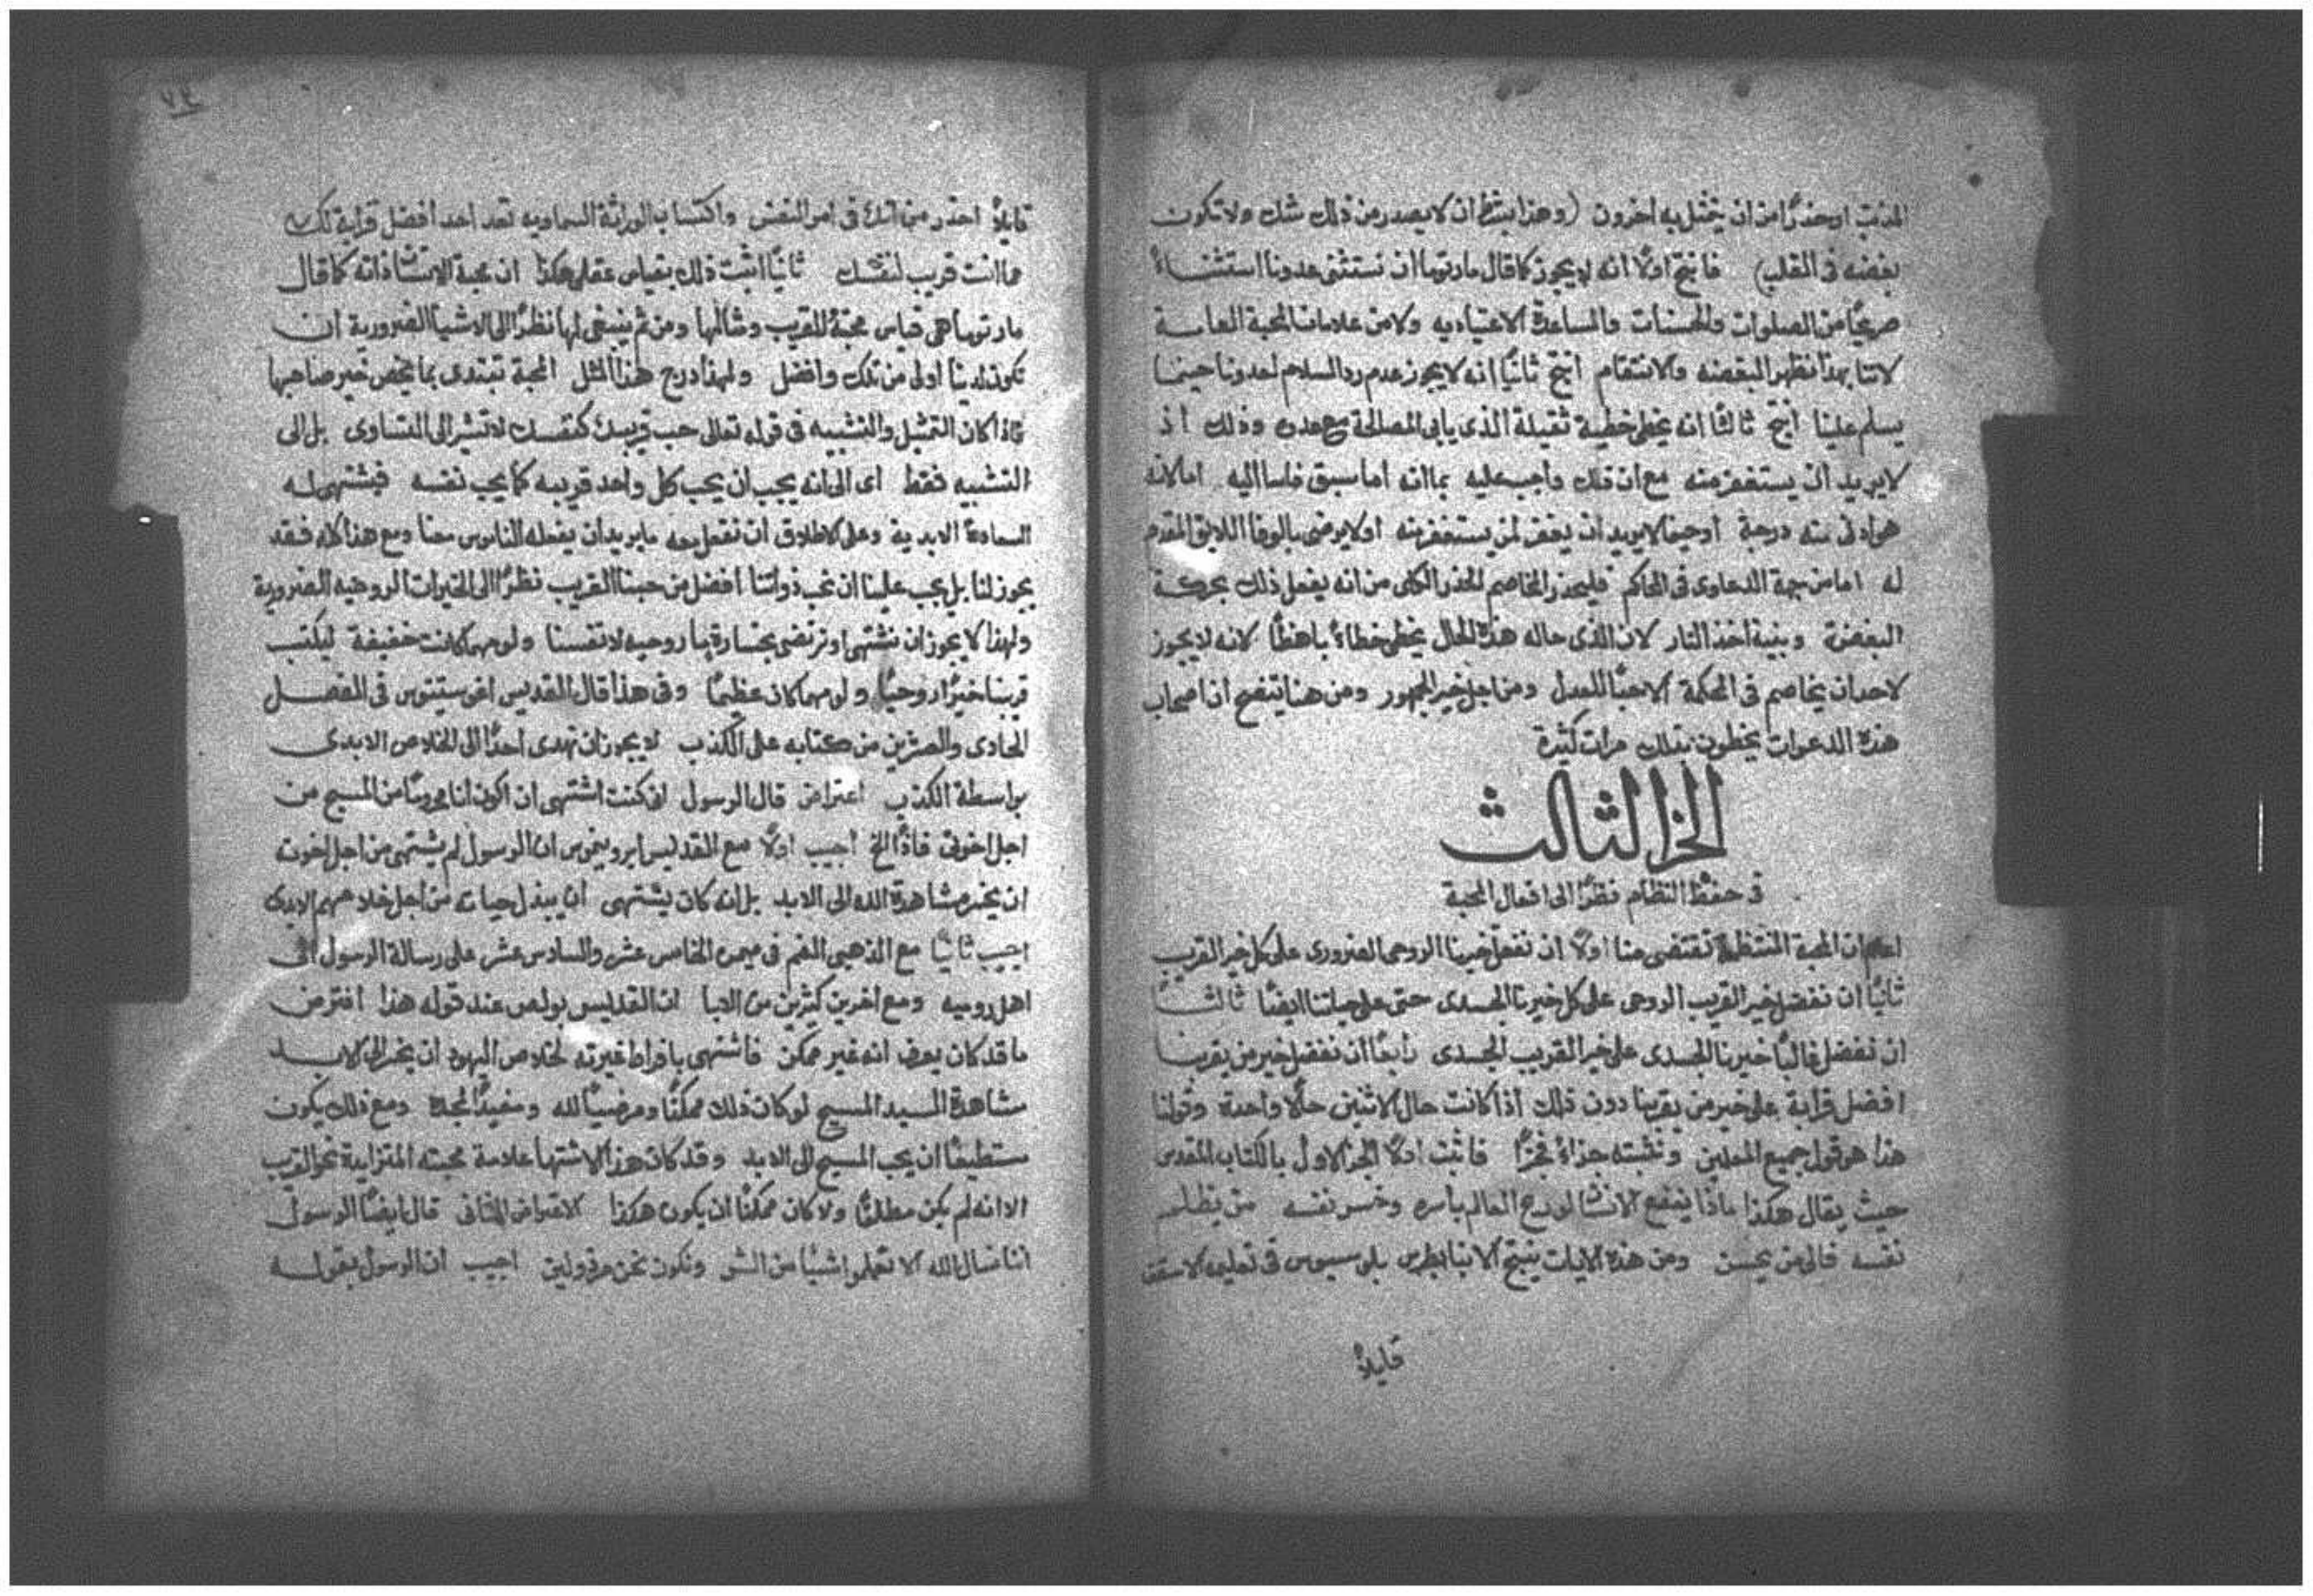 المذنب او حذرًا من ان يتمثل به اخرون (وهذا بشرط ان لا يصدر من ذلك شك ولا تكون
بغضه في القلب) فانتج اولًا انه لا يجوز كما قال مار توما ان نستثنى عدونا استثناءً
صريحًا من الصلوات والحسنات والمساعدة الاعتياديه ولا من علامات المحبة العامة
لاننا بهذا نظهر البغضه والانتقام انتج ثانيًا انه لا يجوز عدم رد السلام لعدونا حينما
يسلم علينا انتج ثالثًا انه يخطى خطية ثقيلة الذى يابى المصالحة مع عدوه وذلك اذ
لا يريد ان يستغفر منه مع ان ذلك واجب عليه بما انه اما سبق فاسا اليه اما لانه
هو ادنى منه درجة او حينما لا يريد ان يغفر لمن يستغفر منه او لا يرضى بالوفا اللايق المقدم
له اما من جهة الدعاوى في المحاكم فليحذر المخاصم الحذر الكلى من انه يفعل ذلك بحركة
البغضة وبنية اخذ الثار لان الذى حاله هذه الحال يخطى خطاءً باهظًا لانه لا يجوز
لاحد ان يخاصم في المحكمة الا حبًا للعدل ومن اجل خير الجمهور ومن هنا يتضح ان اصحاب
هذه الدعوات يخطون بذلك مرات كثيرة
الجز الثالث
في حفظ النظام نظرًا الى افعال المحبة
اعلم ان المحبة المنتظمة تقتضى منا اولًا ان نفضل خيرنا الروحى الضرورى على كل خير القريب
ثانيًا ان نفضل خير القريب الروحى على كل خيرنا الجسدى حتى على حياتنا ايضًا ثالثًا
ان نفضل غالبًا خيرنا الجسدى على خير القريب الجسدى رابعًا ان نفضل خير من يقربنا
افضل قرابة على خير من يقربنا دون ذلك اذا كانت حال الاثنين حالًا واحدة وقولنا
هذا هو قول جميع المعلمين ونثبته جزاءً فجزًا فاثبت اولًا الجز الاول بالكتاب المقدس
حيث يقال هكذا ماذا ينفع الانسان لو ربح العالم باسره وخسر نفسه من يظلم
نفسه فالى من يحسن ومن هذه الايات ينتج الانبا بطرس بلوسيوس في تعليمه
قايلًا
٧٤
قايلًا احذر من انك في امر النفس واكتساب الوراثة السماويه تعد احد افضل قرابة لك
مما انت قريب لنفسك ثانيًا اثبت ذلك بقياس عقلى هكذا ان محبة الانسان ذاته كما قال
مار توما هى قياس محبة للقريب ومثالها ومن ثم ينبغى لها نظرًا الى الاشيا الضرورية ان
تكون لدينا اولى من تلك وافضل ولهذا درج هذا المثل المحبة تبتدى بما يخص خير صاحبها
فاذا كان التمثيل والتشبيه في قوله تعالى حب قريبك كنفسك لا تشير الى التساوى بل الى
التشبيه فقط اى الى انه يجب ان يحب كل واحد قريبه كما يحب نفسه فيشتهى له
السعادة الابدية وعلى الاطلاق ان نفعل معه ما يريد ان يفعله الناس معنا ومع هذا كله فقد
يجوز لنا بل يجب علينا ان نحب ذواتنا افضل من حبنا القريب نظرًا الى الخيرات الروحيه الضرورية
ولهذا لا يجوز ان نشتهى او نرتضى بخسارة ما روحيه لانفسنا ولو مهما كانت خفيفة ليكتسب
قريبنا خيرًا روحيًا ولو مهما كان عظيمًا وفي هذا قال القديس اغوستينوس في الفصل
الحادى والعشرين من كتابه على الكذب لا يجوز ان نهدى احدًا الى الخلاص الابدى
بواسطة الكذب اعتراض قال الرسول انى كنت اشتهى ان اكون انا محرومًا من المسيح من
اجل اخوتى فاذًا الخ اجيب اولًا مع القديس ايرونيموس ان الرسول لم يشتهى من اجل اخوته
ان يخسر مشاهدة الله الى الابد بل انه كان يشتهى ان يبذل حياته من اجل خلاصهم الابدى
اجيب ثانيًا مع الذهبى الفم في ميمره الخامس عشر والسادس عشر على رسالة الرسول الى
اهل روميه ومع اخرين كثيرين من الابا ان القديس بولص عند قوله هذا افترض
ما قد كان يعرف انه غير ممكن فاشتهى بافراط غيرته لخلاص اليهود ان يخسر الى الابد
مشاهدة السيد المسيح لو كان ذلك ممكنًا ومرضيًا لله ومفيدًا لمجده ومع ذلك يكون
مستطيعًا ان يحب المسيح الى الابد وقد كان هذا الاشتها علامة محبته المتزايدة نحو القريب
الا انه لم يكن مطلقًا ولا كان ممكنًا ان يكون هكذا الاعتراض الثانى قال ايضًا الرسول
اننا نسال الله الا تعملوا شيًا من الشر ونكون نحن مرذولين اجيب ان الرسول بقوله